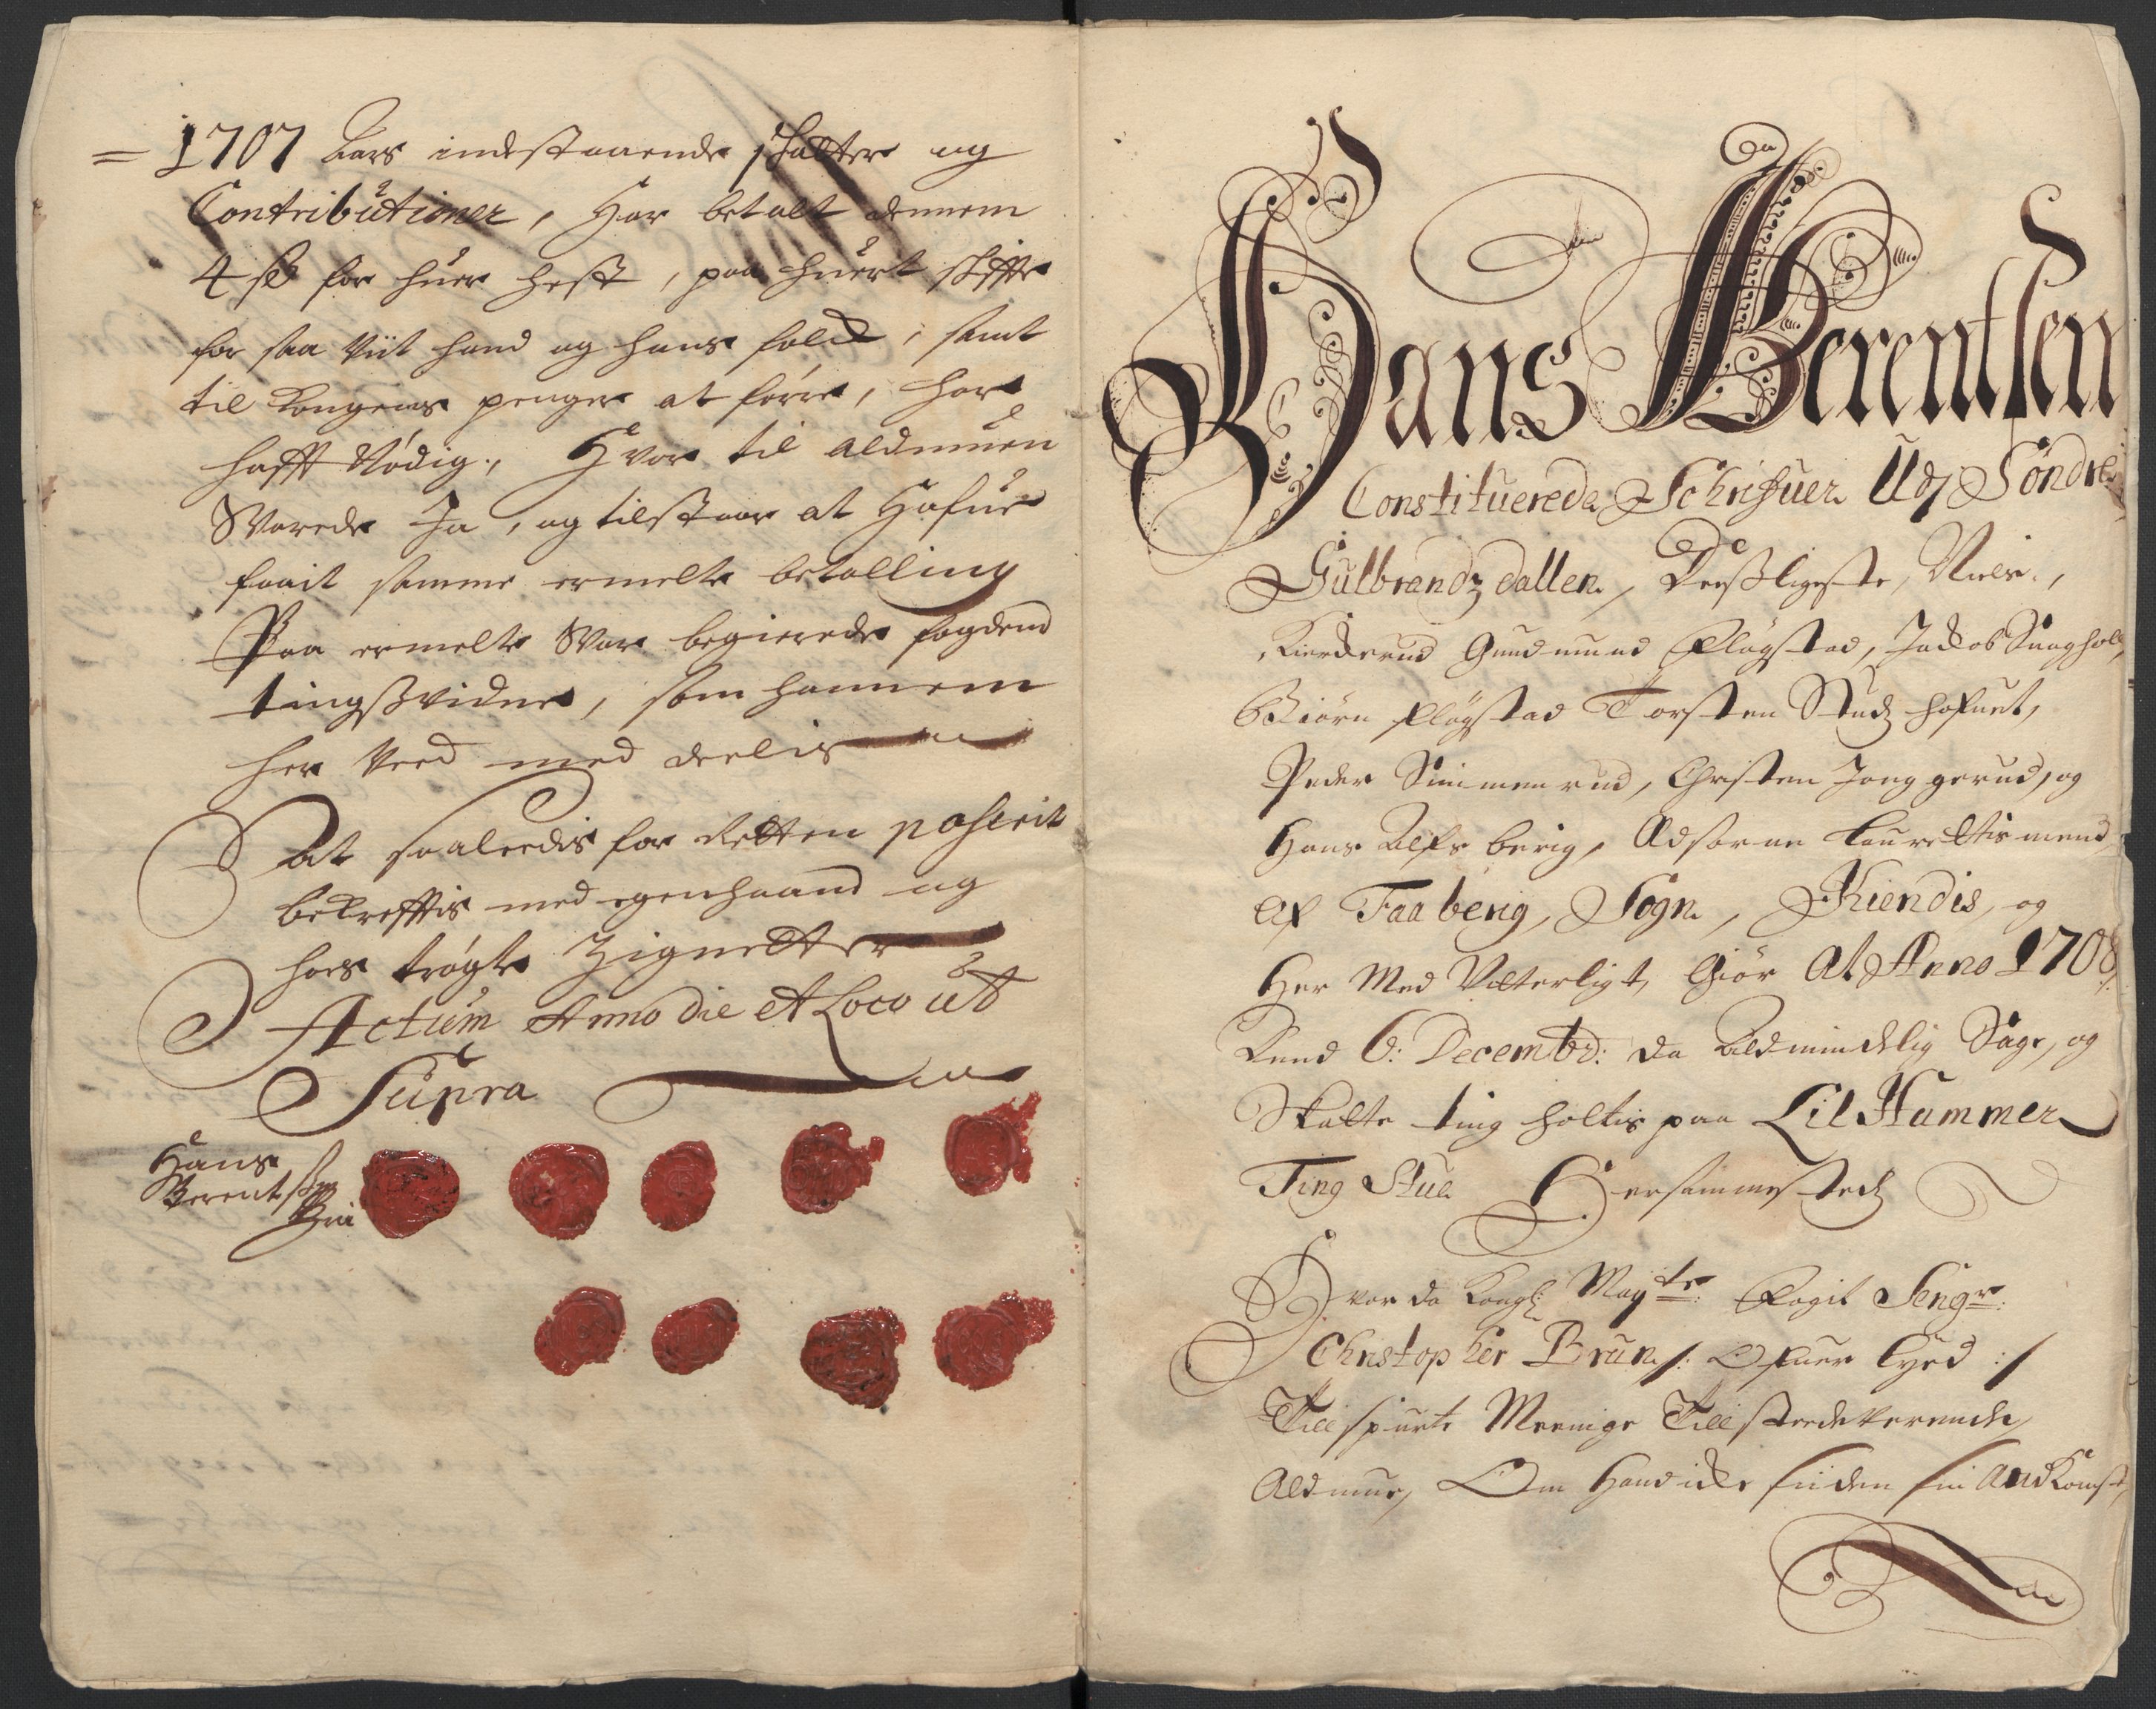 = 1707 Aars indestaaende skatter og
Contributioner, Har betalt dennem
4 sk for huer hest, paa huert skiffte
for saa viit hand og hans folck, samt
til Kongens penger at føre, har
hafft Nødig., Hvor til aldmuen
Svarede Ja, og tilstaar at Hafue
faait samme ermelte betalling
Paa ermelte Svar begierede fogden
tingsvidne, som hannem
her ved med deelis
At saaleedis for Retten paserit
bekrefftis med egenhaand og
hoes trøgte Zignetter
Actum Anno die et Loco ut
Supra
Hans
Berentsen
Hans Berentsen
Constituerede Schrifuer Udj Søndre
Gulbrandzdallen, Deesligeste, Niels,
Kierderud Gundmund Fløgstad, Jackob Smeghol,
Biørn Fløgstad Torsten Studzhofuet,
Peder Simmenrud, Christen Jonggerud, og
Hans Alfsberig, Adsorne Laurettis mend
Af Faaberig, Sogn, Kiendis, og
Her Med Vitterligt, Giør At Anno 1708
Dend 6: Decembr: da Aldmindelig Sage, og
Skatte ting holtis paa LilHammer
Ting Stue Hersammestedz
Hvor da Kongl: Mayts: Fogit Sengr:
Christopher Brun /: Ofuer Lyed :/
Tilspurte Meenige Tilsteedeverende
Aldmue, Om Hand icke siiden sin Andkomst,